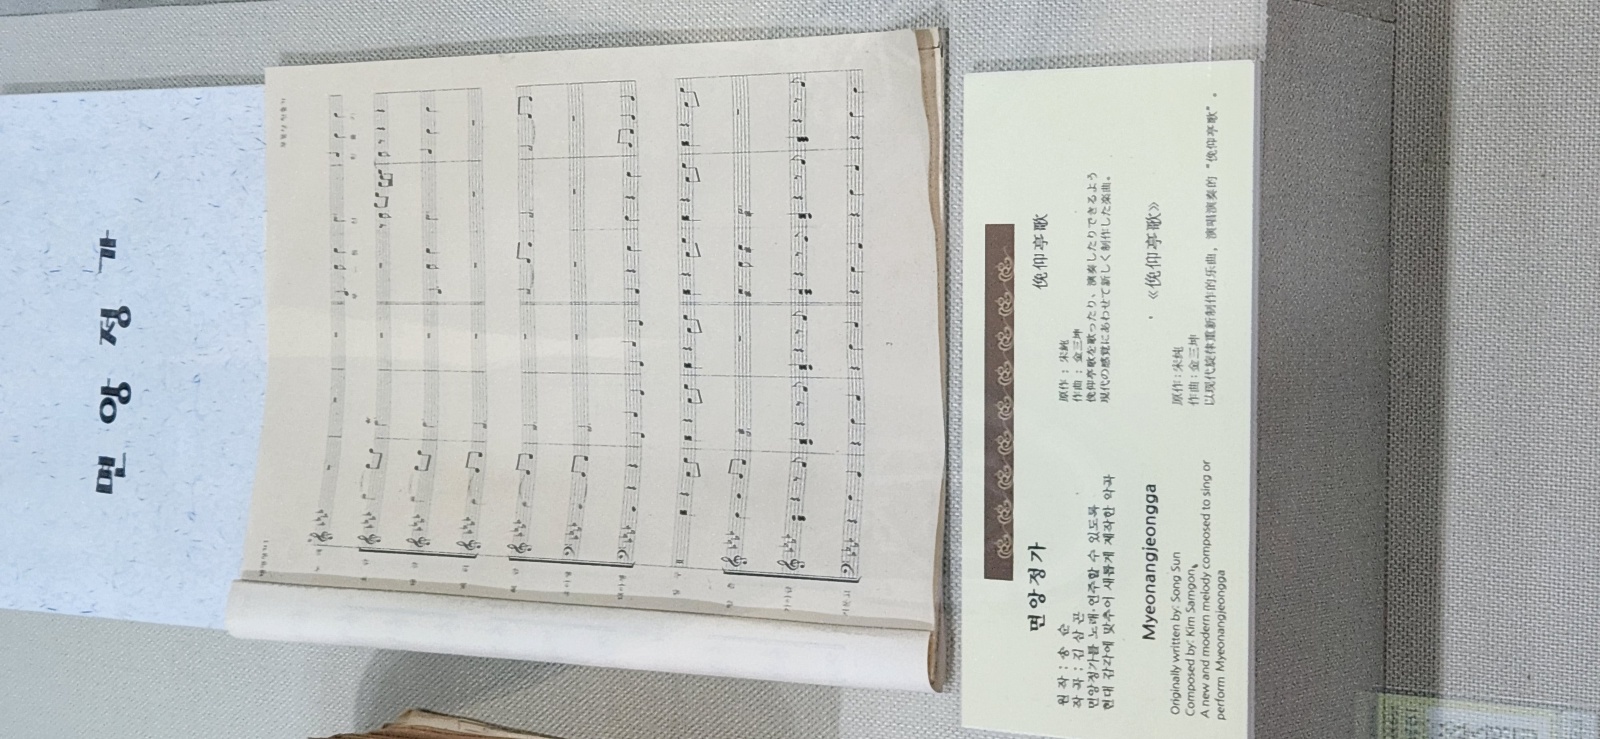 면앙정가
면앙정가
원작 : 송 순
작곡 : 김 삼 곤
면앙정가를 노래·연주할 수 있도록
현대 감각에 맞추어 새롭게 제작한 악곡
Myeonangjeongga
Originally written by: Song Sun
Composed by: Kim Samgon
A new and modern melody composed to sing or
perform Myeonangjeongga
俛仰亭歌
原作 : 宋純
作曲 : 金三坤
俛仰亭歌を歌ったり、演奏したりできるよう
現代の感覚にあわせて新しく制作した楽曲。
《俛仰亭歌》
原作 : 宋純
作曲 : 金三坤
以现代旋律重新制作的乐曲，演唱演奏的“俛仰亭歌”。